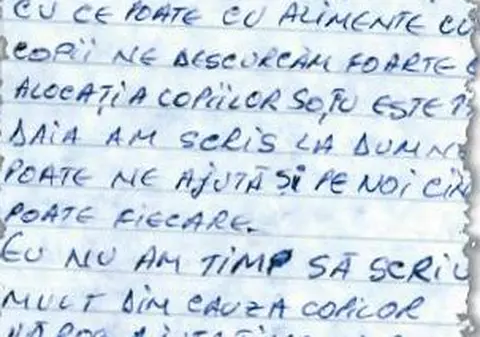 CU CE POATE CU ALIMENTE CU
COPII NE DESCURCĂM FOARTE
ALOCAȚIA COPIILOR SOȚU ESTE
DAIA AM SCRIS LA
POATE NE AJUTĂ ȘI PE NOI
POATE FIECARE.
EU NU AM TIMP SĂ SCRIU
MULT DIN CAUZA COPILOR